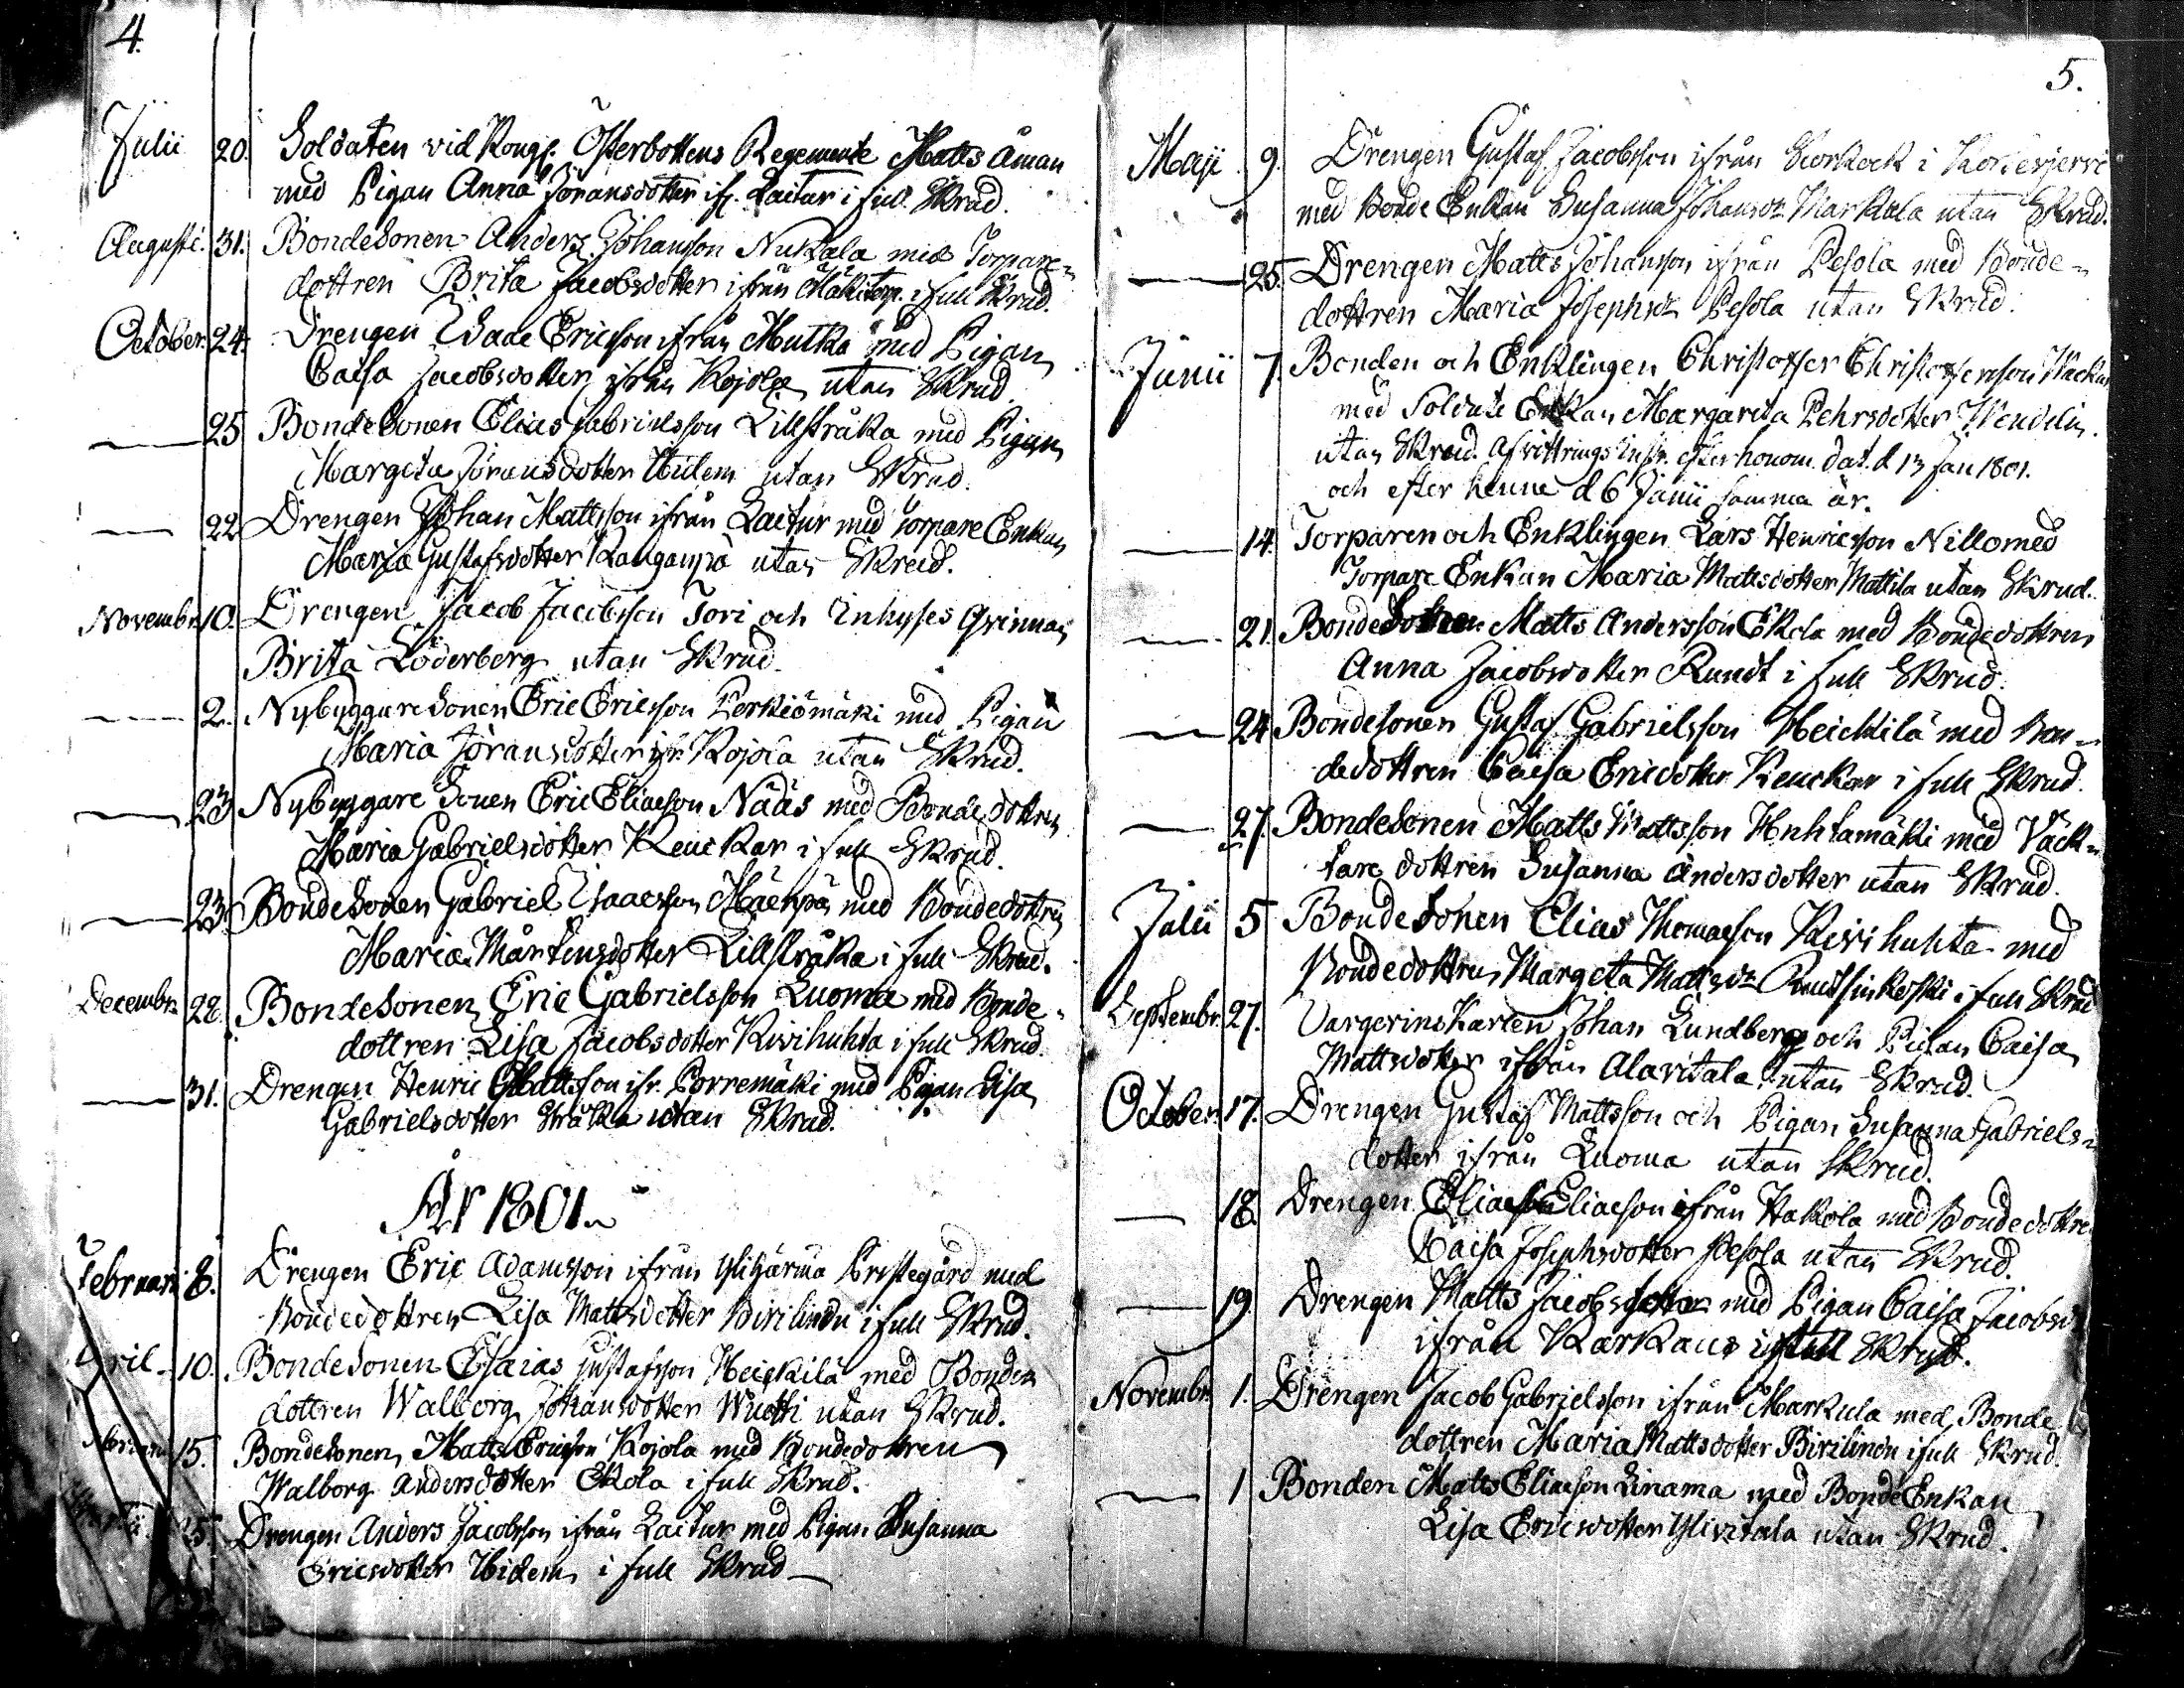 4.
Julii 20. Soldaten vid Kongl. Österbottens Regemente Matts Åman
med Pigan Anna Jöransdotter ifr. Laitur i full Skrud.
Augusti. 31. Bondesonen Anders Johansson Nukala med Torpare-
dottren Brita Jacobsdotter ifrån Mäkitorp. i full Skrud.
October. 24. Drengen Isaac Ericsson ifrån Mutka med Pigan
Caisa Jacobsdotter ifrån Kojola utan Skrud.
25 Bondesonen Elias Gabrielsson Lillstråka med Pigan
Margeta Jöransdotter utan Skrud.
22 Drengen Johan Mattsson ifrån Laitur med Torpare Enkan
Maria Gustafsdotter Kanganpä utan Skrud.
Novembr. 10. Drengen Jacob Jacobsson Tori och Inhyses Qvinnan
Brita Söderberg utan Skrud.
2. Nybyggare Sonen Eric Ericsson Perkiömäki med Pigan
Maria Jöransdotter ifr. Kojola utan Skrud.
23 Nybyggare Sonen Eric Eliasson Nääs med Bondedottren
Maria Gabrielsdotter Keuckar i full Skrud.
23. Bondesonen Gabriel Isaacsson Mäenpä med Bondedottren
Maria Mårtensdotter Lillstråka i full Skrud.
Decembr. 22. Bondesonen Eric Gabrielsson Luoma med Bonde-
dottren Lisa Jacobsdotter Kivihuhta i full Skrud.
31. Drengen Henric Mattsson ifr. Porremäki med Pigan Lisa
Gabrielsdotter Stråka utan Skrud.
År 1801.
Februari 8. Drengen Eric Adamsson ifrån Ylihärmä Prestegård med
Bondedottren Lisa Mattsdotter Pirilindu i full Skrud.
April 10. Bondesonen Esaias Gustafsson Heickilä med Bonde
dottren Walborg Johansdotter Wuotti utan Skrud.
15. Bondesonen Matts Ericsson Kojola med Bondedottren
Walborg Andersdotter Ekola i full Skrud.
25. Drengen Anders Jacobsson ifrån Laitur med Pigan Susanna
Ericsdotter Ibidem i full Skrud
5.
Maji 9. Drengen Gustaf Jacobsson ifrån i Kortesjervi
med Bonde Enkan Susanna Johansdr. Markkola utan Skrud.
25. Drengen Matts Johansson ifrån Pesola med Bonde-
dottren Maria Josephsdr. Pesola utan Skrud.
Junii 7. Bonden och Enklingen Christoffer Christoffersson
med Soldate Enkan Margareta Pehrsdotter Wendelin.
utan Skrud. Afvittrings Instr. efter honom dat. d 13 Jan 1801.
och efter henne d 6 Junii samma år.
14. Torparen och Enklingen Lars Henricsson Nillo med
Torpare Enkan Maria Mattsdotter Mattila utan Skrud.
21. Bondesonen Matts Andersson Ekola med Bondedottren
Anna Jacobsdotter Rundt i full Skrud.
24 Bondesonen Gustaf Gabrielsson Heickilä med Bon-
dedottren Caisa Ericsdotter Keuckar i full Skrud.
27. Bondesonen Matts Mattsson Huhtamäki med Väck-
tare dottren Susanna Andersdotter utan Skrud.
Julii 5 Bondesonen Elias Thomasson Kivihuhta med
Bondedottren Margeta Mattsdr. Ruutsinkoski i full Skrud
Septembr. 27. Johan Lundberg och Pigan Caisa
Mattsdotter ifrån Alavitala utan Skrud.
October. 17. Drengen Gustaf Mattsson och Pigan Susanna Gabriels-
dotter ifrån Luoma utan Skrud.
18. Drengen Elias Eliasson ifrån Hakola med Bondedottren
Caisa Josephsdotter Pesola utan Skrud.
19. Drengen Matts Jacobsson med Pigan Caisa Jacobsd
ifrån Karkaus i full Skrud.
Novembr. 1. Drengen Jacob Gabrielsson ifrån Markula med Bonde
dottren Maria Mattsdotter Pirilindu i full Skrud.
1 Bonden Matts Eliasson Linama med Bonde Enkan
Lisa Ericsdotter Ylivitala utan Skrud.